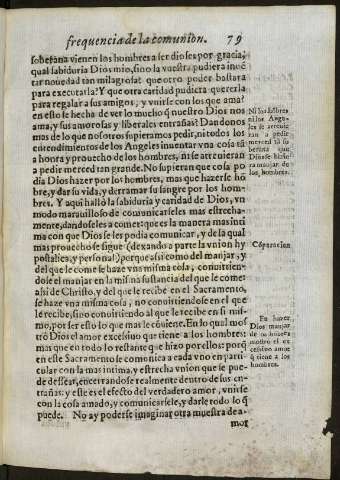 frequencia de la comunion. 79
soberana vienen los hombres a ser dioses por gracia;
qual sabiduria Dios mio, sino la vuestra pudiera inuē
tar nouedad tan milagrosa? que otro poder bastara
para executarla? Y que otra caridad pudiera quererla
para regalar a sus amigos, y vnirse con los que ama?
en esto se hecha de ver lo mucho q̃ nuestro Dios nos
ama, y sus amorosas y liberales entrañas: Dandonos
mas de lo que nosotros supieramos pedir, ni todos los
entendimientos de los Angeles inuentar vna cosa tā
a honra y prouecho de los hombres, ni se atreuieran
a pedir merced tan grande. No supieran que cosa po
dia Dios hazer por los hombres, mas que hazerse hō
bre, y dar su vida, y derramar su sangre por los hom-
bres. Y aqui halló la sabiduria y caridad de Dios, vn
modo marauilloso de comunicarseles mas estrecha-
mente, dandoseles a comer: que es la manera mas inti
ma con que Dios se les podia comunicar, y de la qual
mas prouecho se sigue (dexando a parte la vnion hy
postatica, y personal) porque assi como del manjar, y
del que le come se haze vna misma cosa, conuirtien-
dose el manjar en la misma sustancia del que le come:
assi de Christo, y del que le recibe en el Sacramento,
se haze vna misma cosa, no conuirtiendose en el que
le recibe, sino conuirtiendo al que le recibe en si mis-
mo, por ser esto lo que mas le cōuiene. En lo qual mos
trò Dios el amor excessiuo que tiene a los hombres:
mas que en todo lo restante que hizo por ellos: porq̃
en este Sacramento se comonica a cada vno en parti
cular con la mas intima, y estrecha vnion que se pue-
de dessear, encerrandose realmente dentro de sus en-
trañas: y este es el efecto del verdadero amor, vnirse
con la cosa amado, y comunicarsele, y darle todo lo q̃
puede. No ay poderse imaginar otra muestra de a-
mor
Ni los hōbres
ni los Ange-
les se atreuie
ran a pedir
merced tā so
berana que
Dios se hizie
ra manjar de
los hombres.
Cōparacion
En hazer
Dios manjar
de
mostro el ex
cessiuo amor
q̃ tiene a los
hombres.